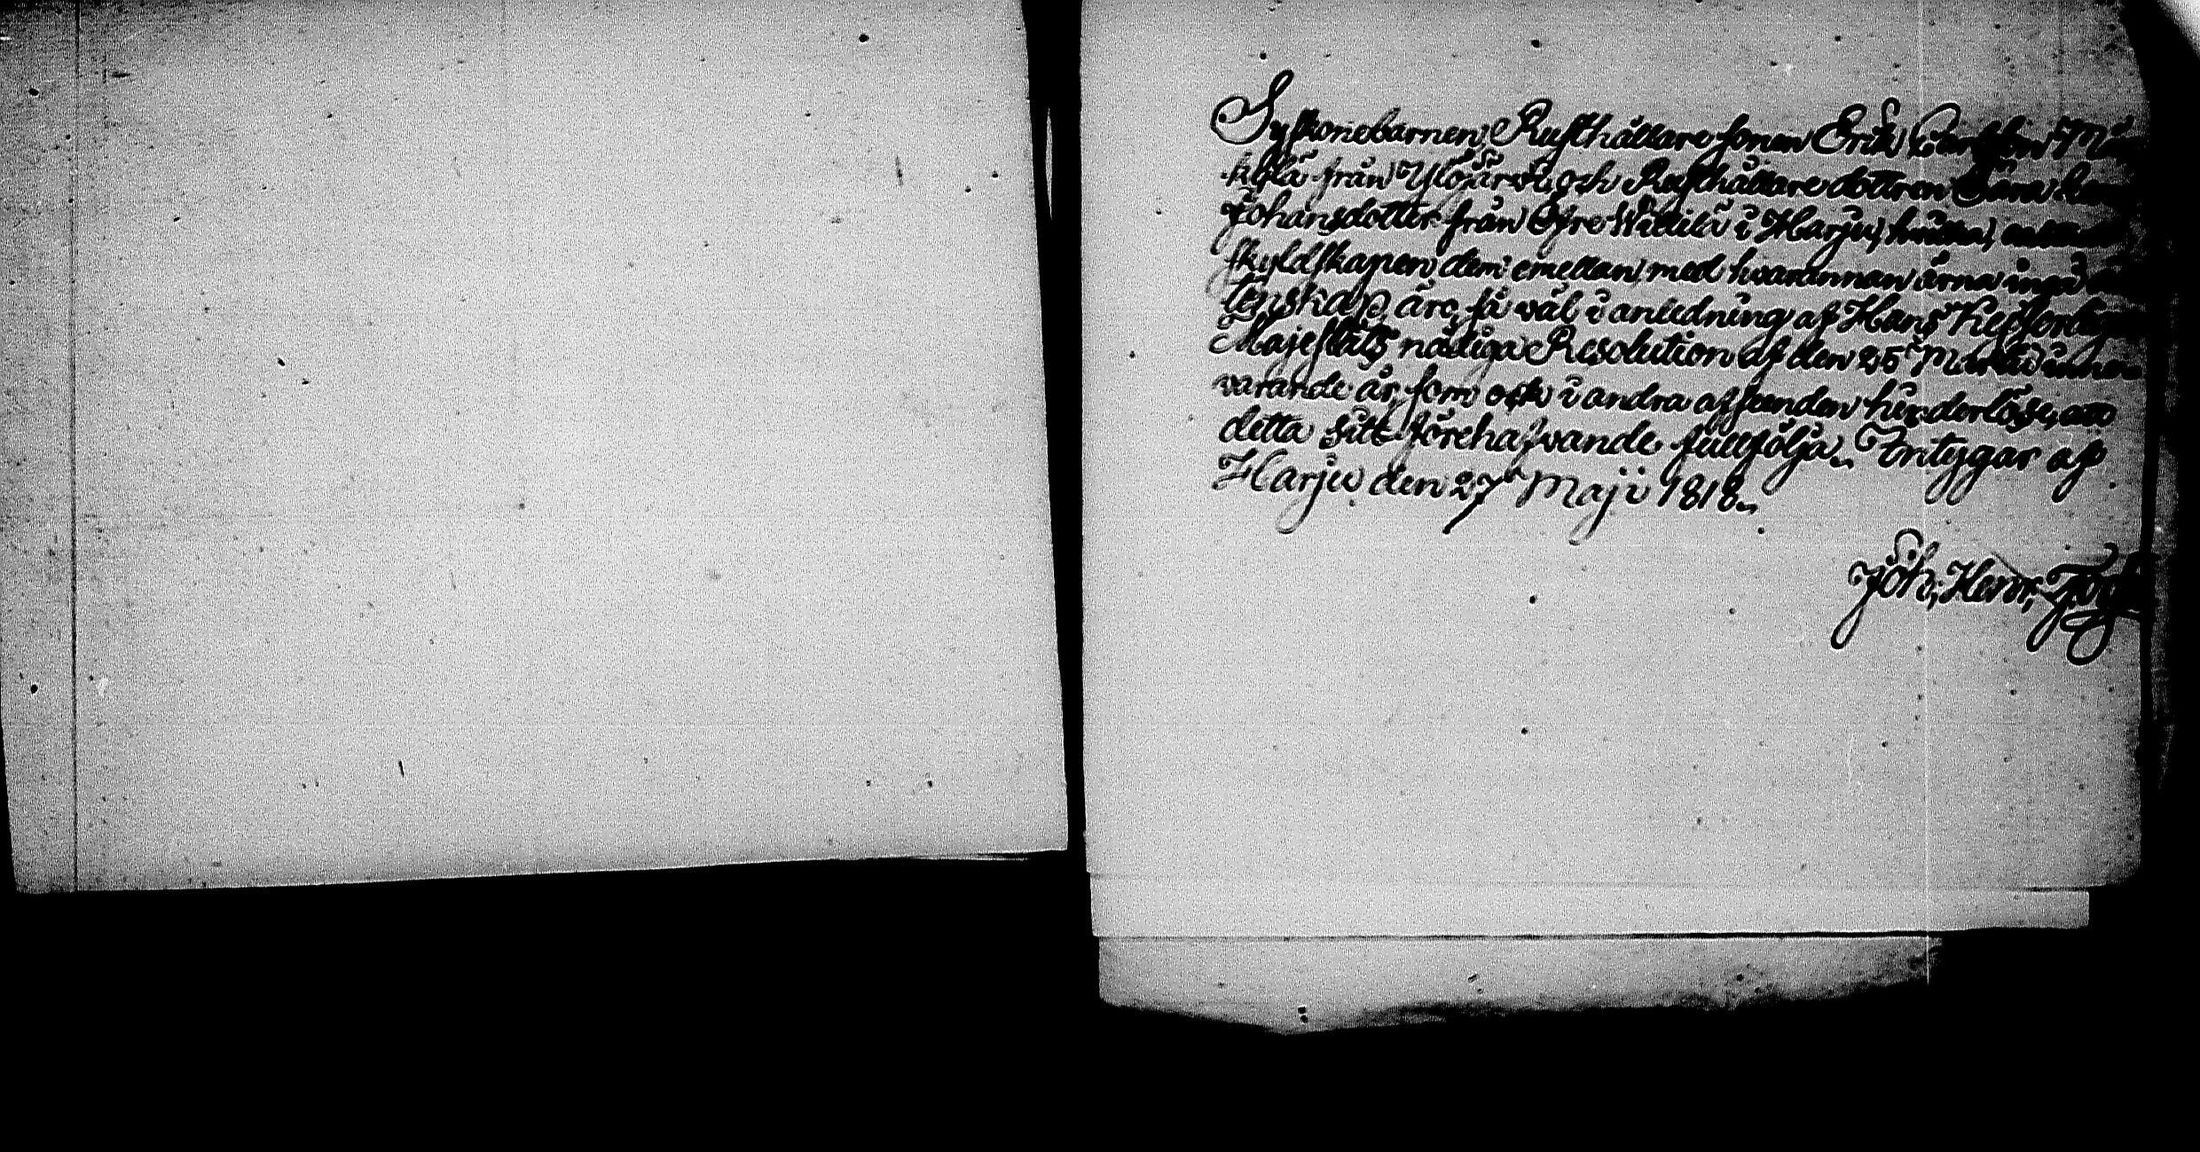 Syskonebarnen, Rusthållare sonen Erik
kylä från Ylöjärvi, och Rusthållare dottren
Johansdotter från Öfre Willilä i Harju, hwilka,
skyldskapen dem emellan, med hvarannan ärna ingå
tenskap, äro, så väl i anledning af Hans Kejserliga
Majestäts nådiga Resolution af den 25 Martii inne
varande år, som ock i andra afseenden hinderlöse, att
detta sitt förehafvande fullfölja. Intygar af
Harju den 27 Maji 1818.
Joh, Henr,